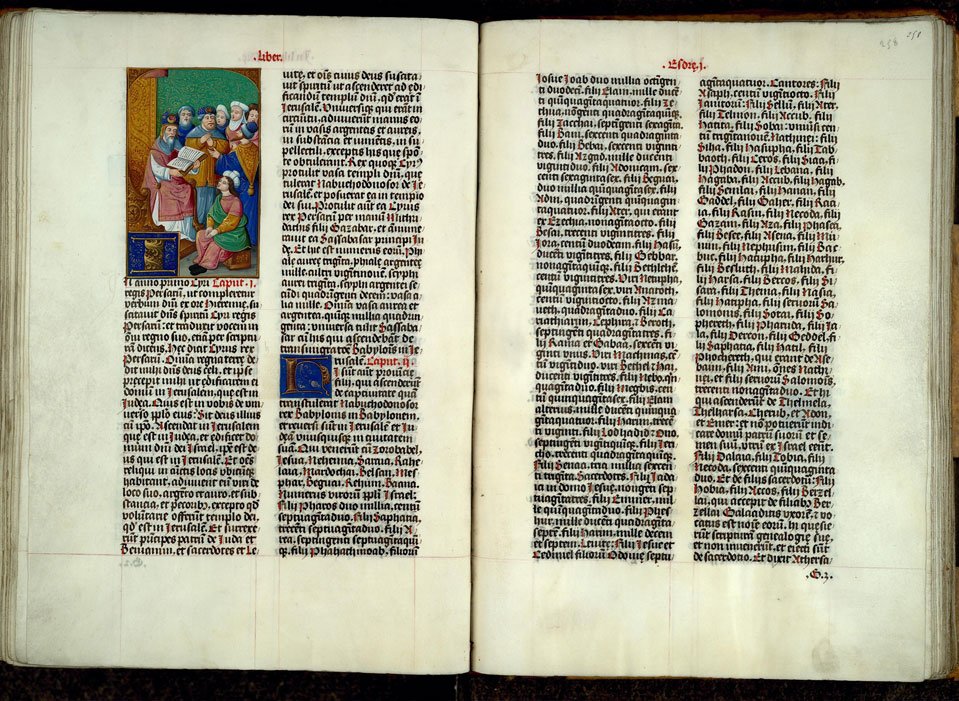 .liber.
In anno primo Cyri Caput .i.
regis Persarū, ut compleretur
verbum dn̄i ex ore Hieremie, su
scitavit dn̄s spiritū Cyri regis
Persarū: et traduxit vocem in
oīi regno suo, etiā per scriptu
rā dicens, Hec dicit Cyrus rex
Persarū. Omīa regna terre de
dit mihi dn̄s deus celi, et ip̄e
precepit mihi ut edificarem ei
domū in Jerusalem, que est in
Judea. Quis est in vobis de uni
verso pplō eius: Sit deus illius
cū ip̄o. Ascendat in Jerusalem
que est in Judea, et edificet do
mum dn̄i dei Israel. ip̄e est de
us qui est in Jerusalē. Et oēs
reliqui in cūctis locis ubicūq̄
habitant, adiuvent eū viri de
loco suo, argēto et auro, et sub
stancia, et pecorib, excepto qd̄
volūtarie offerūt templo dei,
qd̄ est in Jerusalē. Et surrexe
rūt principes patrū de Juda et
Beniamin, et sacerdotes et Le
vite, et oīs cuius deus suscita
vit spiritū ut ascenderet ad edi
ficandū templū dn̄i, qd̄ erat in
Jerusalē. Universiq̄ qui erāt in
circuitu, adiuverūt manus eo
rū in vasis argenteis et aureis,
in substācia et iumētis, in su
pellectili, exceptis his que spō
te obtulerant. Rex quoq̄ Cyrꝰ
protulit vasa templi dn̄i, que
tulerat Nabuchodonosor de Ie
rusalē, et posuerat ea in templo
dei sui. Protulit aūt ea Cyrus
rex Persarū per manū Mithri
dathis filij Gazabar, et annume
ravit ea Sassabasar principi Iu
de. Et hic est numerus eorū. Phi
ale auree trigīta, phiale argēteę
mille, cultri vigītinovē, scyphi
aurei trigīta, scyphi argentei se
cūdi quadrīgenti decem: vasa a
lia mille. Omīa vasa aurea et
argentea, quīq̄ milia quadrin
gēta: universa tulit Sassaba
sar cū his qui ascendebāt de
transmigratiōe Babylōis in Je
rusalē. Caput .ij.
Hi sūt aūt provīcie
filij, qui ascenderūt
de captivitate quā
transtulerat Nabuchodonosor
rex Babylonis in Babylonem,
et reversi sunt in Jerusalē et Iu
deā unusquisq̄ in civitatem
suā. Qui venerūt cū Zorobabel,
Iesua, Nehemia, Saraia, Rahe
laia, Mardochai, Belsan, Mes
phar, Beguai, Rehum, Baana.
Numerus virorū pplī Israel:
Filij Pharos duo millia, centū
septuagītaduo. Filij Saphatia,
trecēti septuagītaduo. Filij A
rea, septingenti septuagītaquī
q̄. filij Phahathmoab, filiorū
.Esdrę.j.
251
Iosue Joab duo millia octīgen
ti duodecī. filij Elam, mille ducē
ti quīquagītaquattuor. filij Ze
thua, nōgenti quadragītaquīq̄.
filij Zacchai, septīgenti sexagīta.
filij Bani, sexcenti quadragīta
duo. filij Bebai, sexcenti vigīti
tres. filij Azgad, mille ducenti
vigintiduo. filij Adonicam, sex
centi sexagīta sex. filij Beguai,
duo millia quīquagīta sex. filij
Adin, quadrīgenti quīquagin
taquattuor. filij Ater, qui erant
ex Ezechia, nonagītaocto. filij
Besai, trecenti vigītitres. filij
Jora, centū duodecim. filij Hasū,
ducenti vigītitres. filij Gebbar,
nonagītaquīq̄. filij Bethlehē,
centū vigītitres. Viri Netupha,
quīquagīta sex. viri Anathoth,
centū vigītiocto. filij Azma
veth, quadragītaduo. filij Ca
riathiarim, Cephira et Beroth,
septingēti quadragītatres. fi
lij Rama et Gabaa, sexcenti vi
gīti unus. Viri Machmas, cē
tū vigītiduo. viri Bethel et Hai,
ducenti vigītitres. filij Nebo, qn̄
quagītaduo. filij Megbis, cen
tū quīquagīta sex. filij Elam
alterius, mille ducēti quīqua
gītaquattuor. filij Harim, trecē
ti viginti. filij Lod Hadid et Ono,
septingēti vigītiquīq̄. filij Jeri
cho, trecēti quadragītaquīq̄.
Filij Senaa, tria millia sexcen
ti trigīta. Sacerdotes. Filij Iada
ia in domo Iesue, nongēti sep
tuagītatres. filij Emmer, mil
le quīquagītaduo. filij Phes
hur, mille ducēti quadragīta
septē. filij Harim, mille decem
et septem. Levite: Filij Iesue et
Cedmiel filiorū Odovię septu
agītaquattuor. Cantores: Filij
Asaph, centū vigītiocto. Filij
Janitorū: filij Sellū, filij Ater,
filij Telmon, filij Accub, filij
Hatita, filij Sobai: univsi cen
tū trigītanovē. Nathinei: filij
Siha, filij Hasupha, filij Tab
baoth, filij Ceros, filij Siaa, fi
lij Phadon, filij Lebana, filij
Hagaba, filij Accub, filij Hagab,
filij Semlai, filij Hanan, filij
Gaddel, filij Gaher, filij Raa
ia, filij Rasin, filij Necoda, filij
Gazam, filij Aza, filij Phasea,
filij Besee, filij Asena, filij Mu
nim, filij Nephusim, filij Bac
buc, filij Hacupha, filij Harhur,
filij Besluth, filij Mahida, fi
lij Harsa, filij Bercos, filij Si
sara, filij Thema, filij Nasia,
filij Hatipha, filij servorū Sa
lomōnis, filij Sotai, filij So
phereth, filij Pharuda, filij Ja
la, filij Dercon, filij Geddel, fi
lij Saphatia, filij Hatil, filij
Phochereth, qui erant de Ase
baim, filij Ami, ōnes Nathi
nei, et filij servorū Salomōis,
trecenti nonagītaduo. Et hi
qui ascenderūt de Thelmela,
Thelharsa, Cherub, et Adon,
et Emer: et nō potuerūt indi
care domū patrū suorū et se
men suū, utrū ex Israel essēt.
Filij Dalaia, filij Tobia, filij
Necoda, sexcenti quīquaginta
duo. Et de filijs sacerdotū: Filij
Hobia, filij Accos, filij Berzel
lai, qui accepit de filiab Ber
zellai Galaaditis uxorē, et vo
catus est noīe eorū. Hi quesie
rūt scripturā genealogie sue,
et non invenerūt, et eiecti sūt
de sacerdotio. Et dixit Athersa